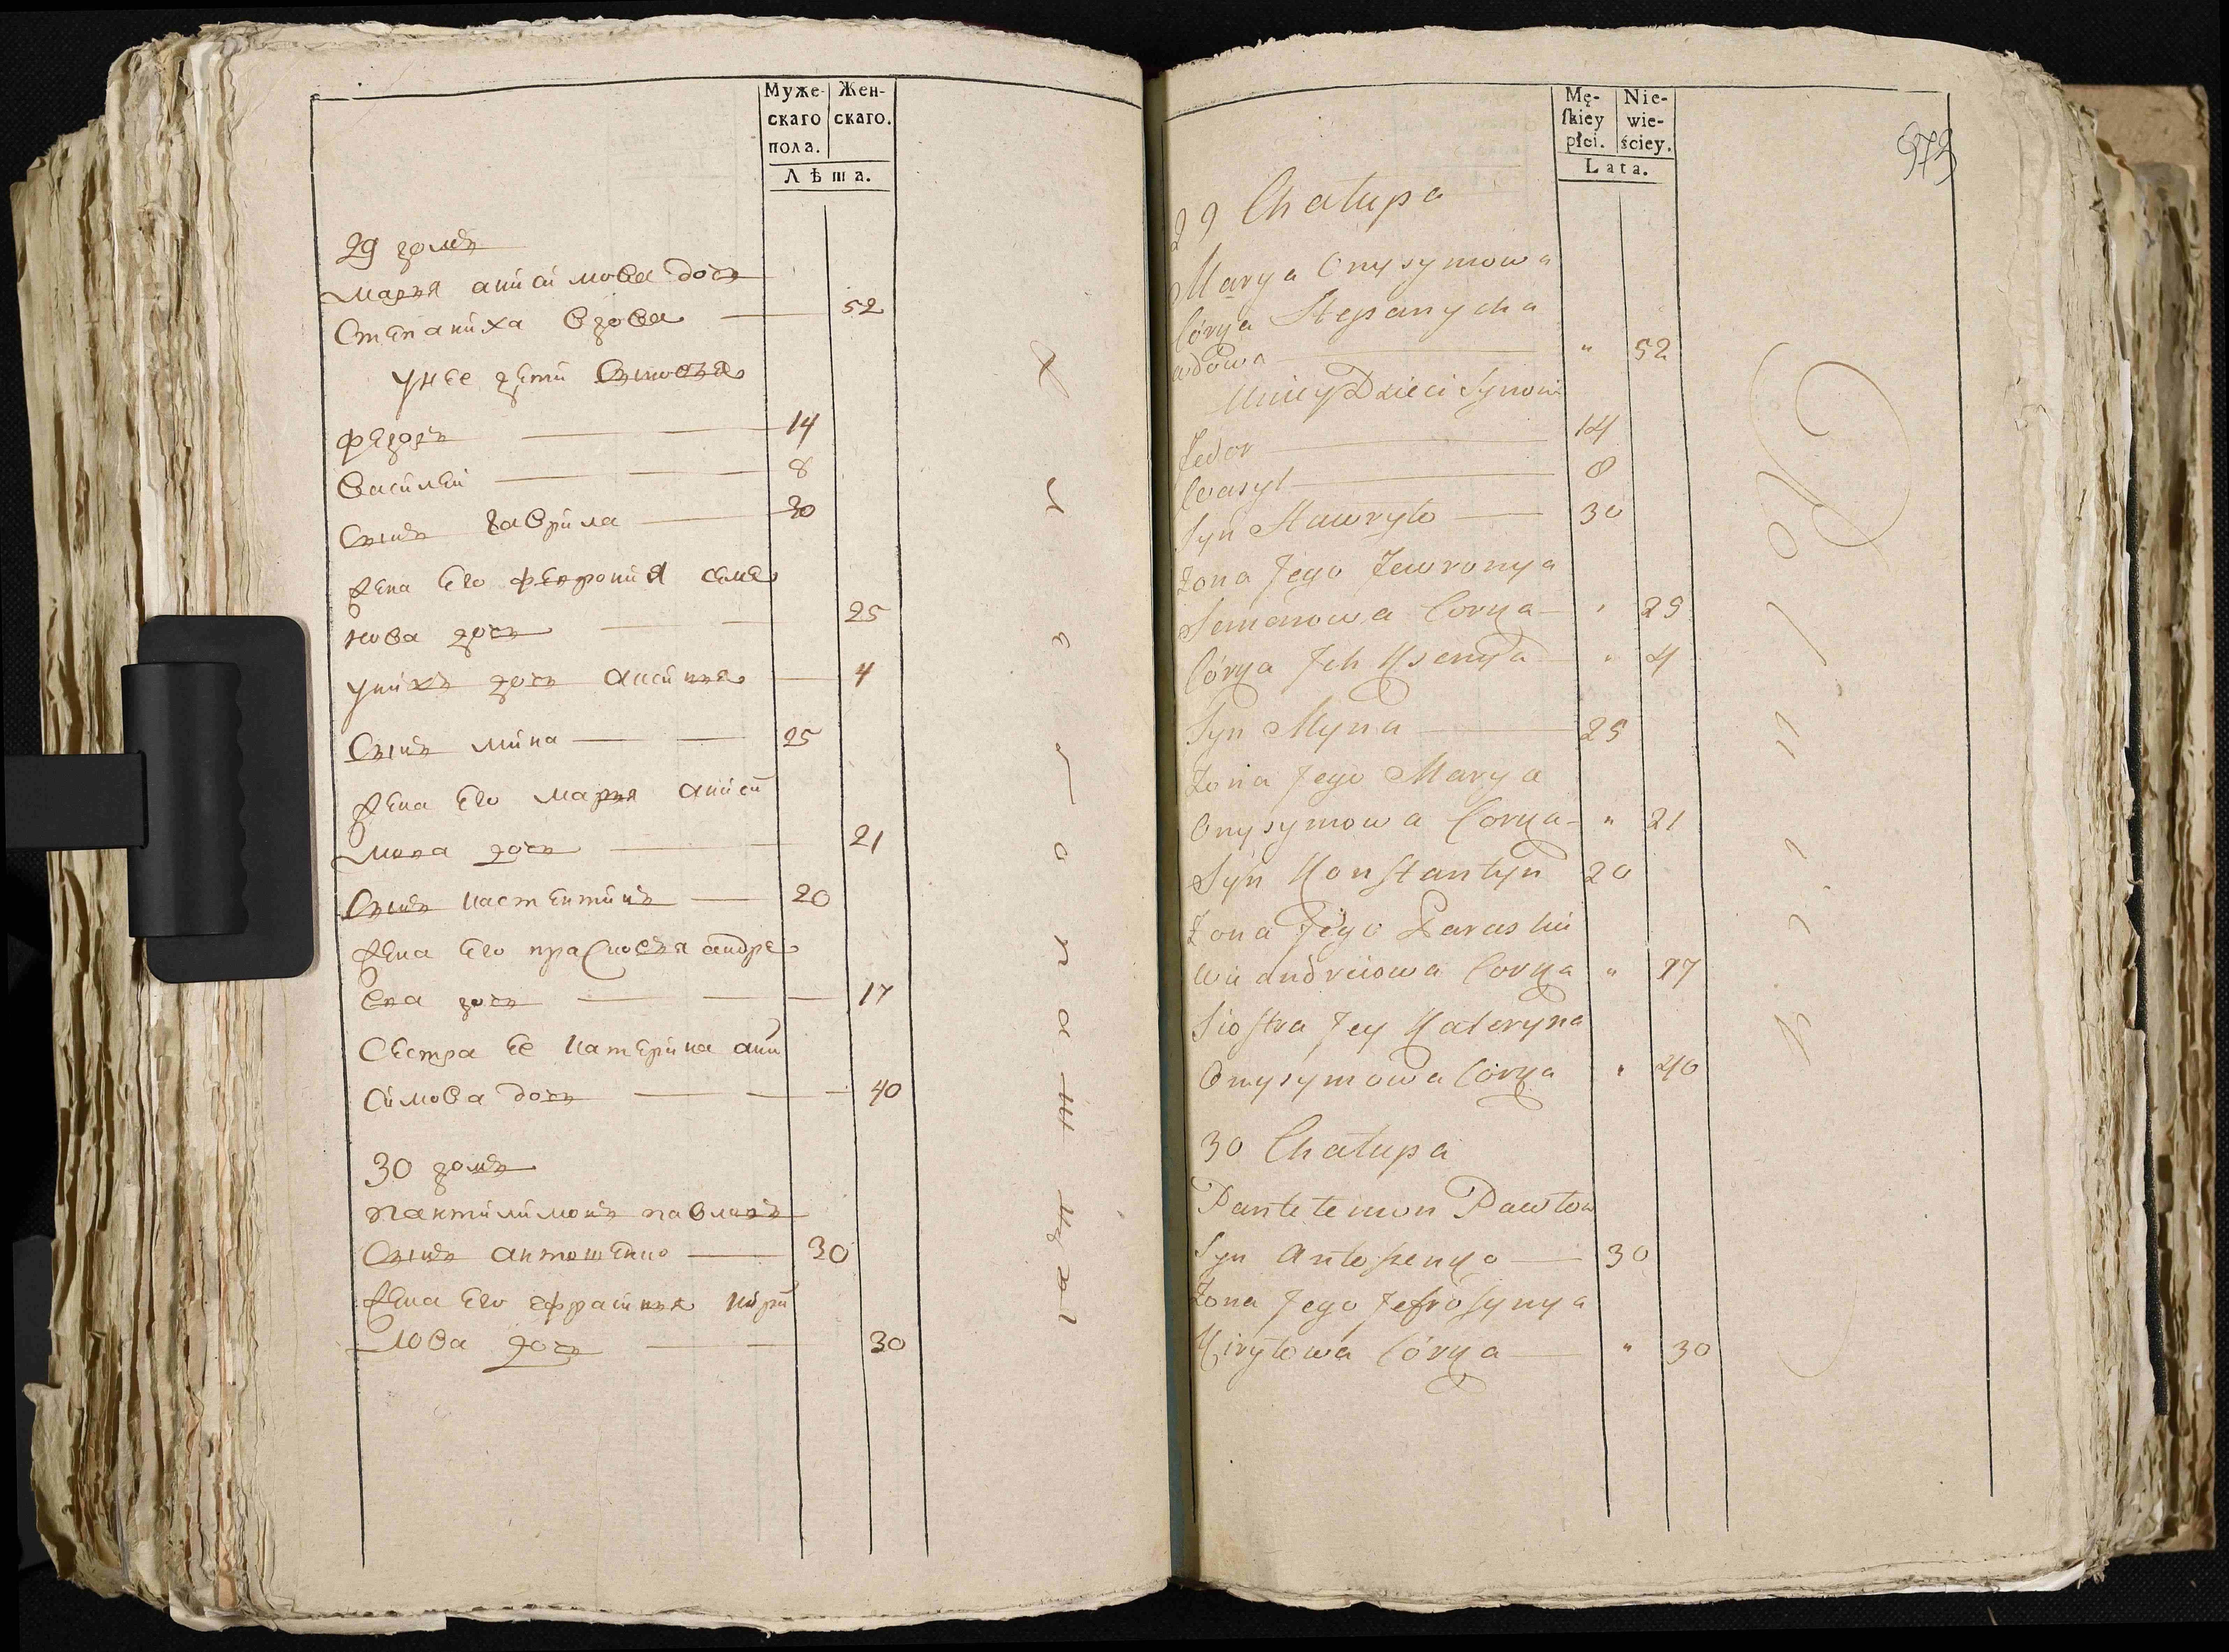 Муже- Жен-
скаго скаго.
пола.
Лѣта.
29 домъ
Марья анисимова дочь
Степаниха вдова 52
у нее дети сыновья
Федоръ 14
Василей 8
Сынъ Гаврила 30
жена Его феврониѧ семе
нова дочь 25
у нихъ дочь аксинья 4
Сынъ мина 25
жена Его марья аниси
мова дочь 21
Сынъ кастентинъ 20
жена Его прасковья андре
ева дочь 17
Сестра Ее катерина ани
симова дочь 40
30 домъ
пантилимонъ павловъ
Сынъ антошенко 30
жена Его ефрасинья кири
лова дочь 30
Mę- Nie-
skiey wie-
płci. ściey.
Lata.
373
29 Chałupa
Marya Onysymowa
Córya Stepanycha
wdowa " 52
Uniey Dzieci Synowie
Fedor 14
Wasyl 8
Syn Hawryło 30
Zona Jego Jewronya
Semenowa Corka " 25
Córka Jch Ksenya " 4
Syn Myna 25
Zona Jego Marya
Onysymowa Corka " 21
Syn Konstantyn 20
Zona Jego Paraski
wia andreiowa Corka " 17
Siostra Jey Kateryna
Onysymowa Córka " 40
30 Chałupa
Pantełemon Pawłow
Syn Antoszenko 30
Zona Jego Jefrosynya
Kiryłowa Córka " 30